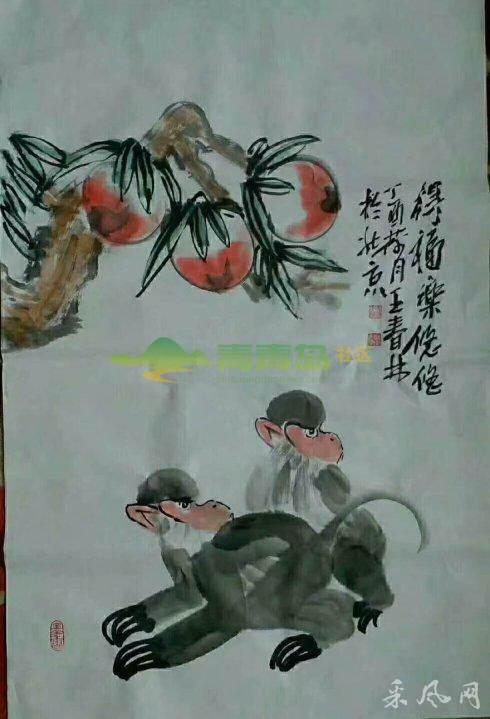 得福乐悠悠
丁酉荷月王春林
於北京
青青岛社区
采风网